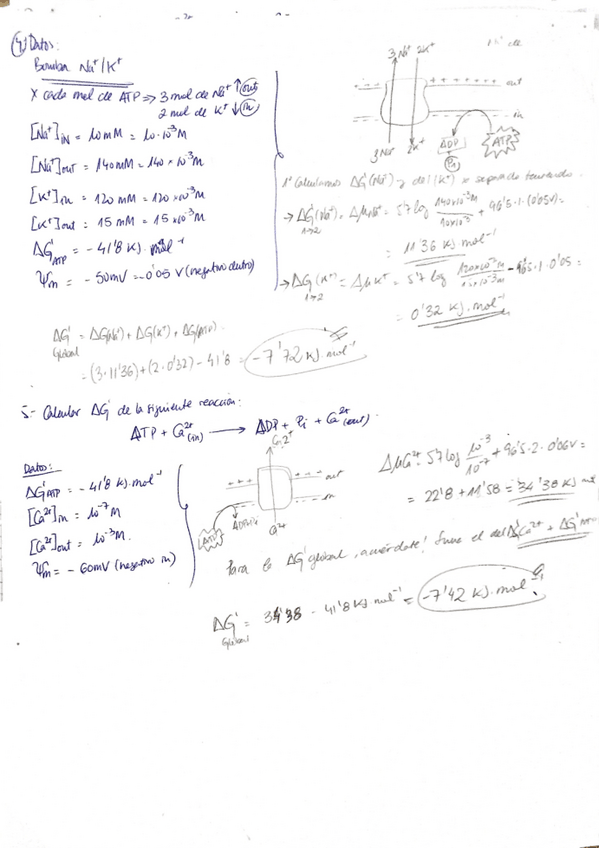 4) Datos:
Bomba Na⁺/K⁺
x cada mol de ATP => 3 mol de Na⁺ ↑ out
2 mol de K⁺ ↓ in
[Na⁺]in = 10 mM = 10·10⁻³M
[Na⁺]out = 140 mM = 140 × 10⁻³M
[K⁺]in = 120 mM = 120 × 10⁻³M
[K⁺]out = 15 mM = 15 × 10⁻³M
ΔG'ATP = -41'8 KJ. mol⁻¹
Ψm = -50mV = -0'05 V (negativo dentro)
3 Na⁺ 2K⁺
+ + + + + + + + out
- - - - in
3Na⁺ 2K⁺ ADP ATP
Pi
1º Calculamos ΔG'(Na⁺) y del (K⁺) x separado
→ ΔG'(Na⁺) = ΔμNa⁺ = 5'7 log 140×10⁻³M / 10×10⁻³ + 96'5·1·(0'05V) =
1→2
= 11'36 KJ mol⁻¹
→ ΔG'(K⁺) = ΔμK⁺ = 5'7 log 120×10⁻³M / 15×10⁻³M - 96'5·1·0'05 =
1→2
= 0'32 KJ. mol⁻¹
ΔG' = ΔG(Na⁺) + ΔG(K⁺) + ΔG(ATP).
Global
= (3·11'36) + (2·0'32) - 41'8 = -7'72 KJ. mol⁻¹
5.- Calcular ΔG' de la siguiente reacción:
ATP + Ca²⁺(in) → ADP + Pi + Ca²⁺(out).
Datos:
ΔG'ATP = -41'8 KJ. mol⁻¹
[Ca²⁺]in = 10⁻⁷M
[Ca²⁺]out = 10⁻³M.
Ψm = -60mV (negativo in)
Ca²⁺
+ + + + out
- - - - in
ATP ADP+Pi Ca²⁺
ΔμCa²⁺ = 5'7 log 10⁻³ / 10⁻⁷ + 96'5·2·0'06V =
= 22'8 + 11'58 = 34'38 KJ mol
Para la ΔG' global, acuérdate! Suma el del ΔG'Ca²⁺ + ΔG'ATP
ΔG' = 34'38 - 41'8 KJ mol⁻¹ = -7'42 KJ. mol⁻¹
Global